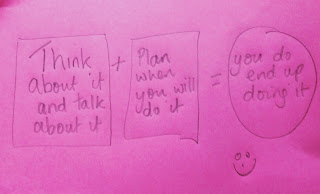 Think
about it
and talk
about it
+
Plan
when
you will
do it
=
you do
end up
doing it